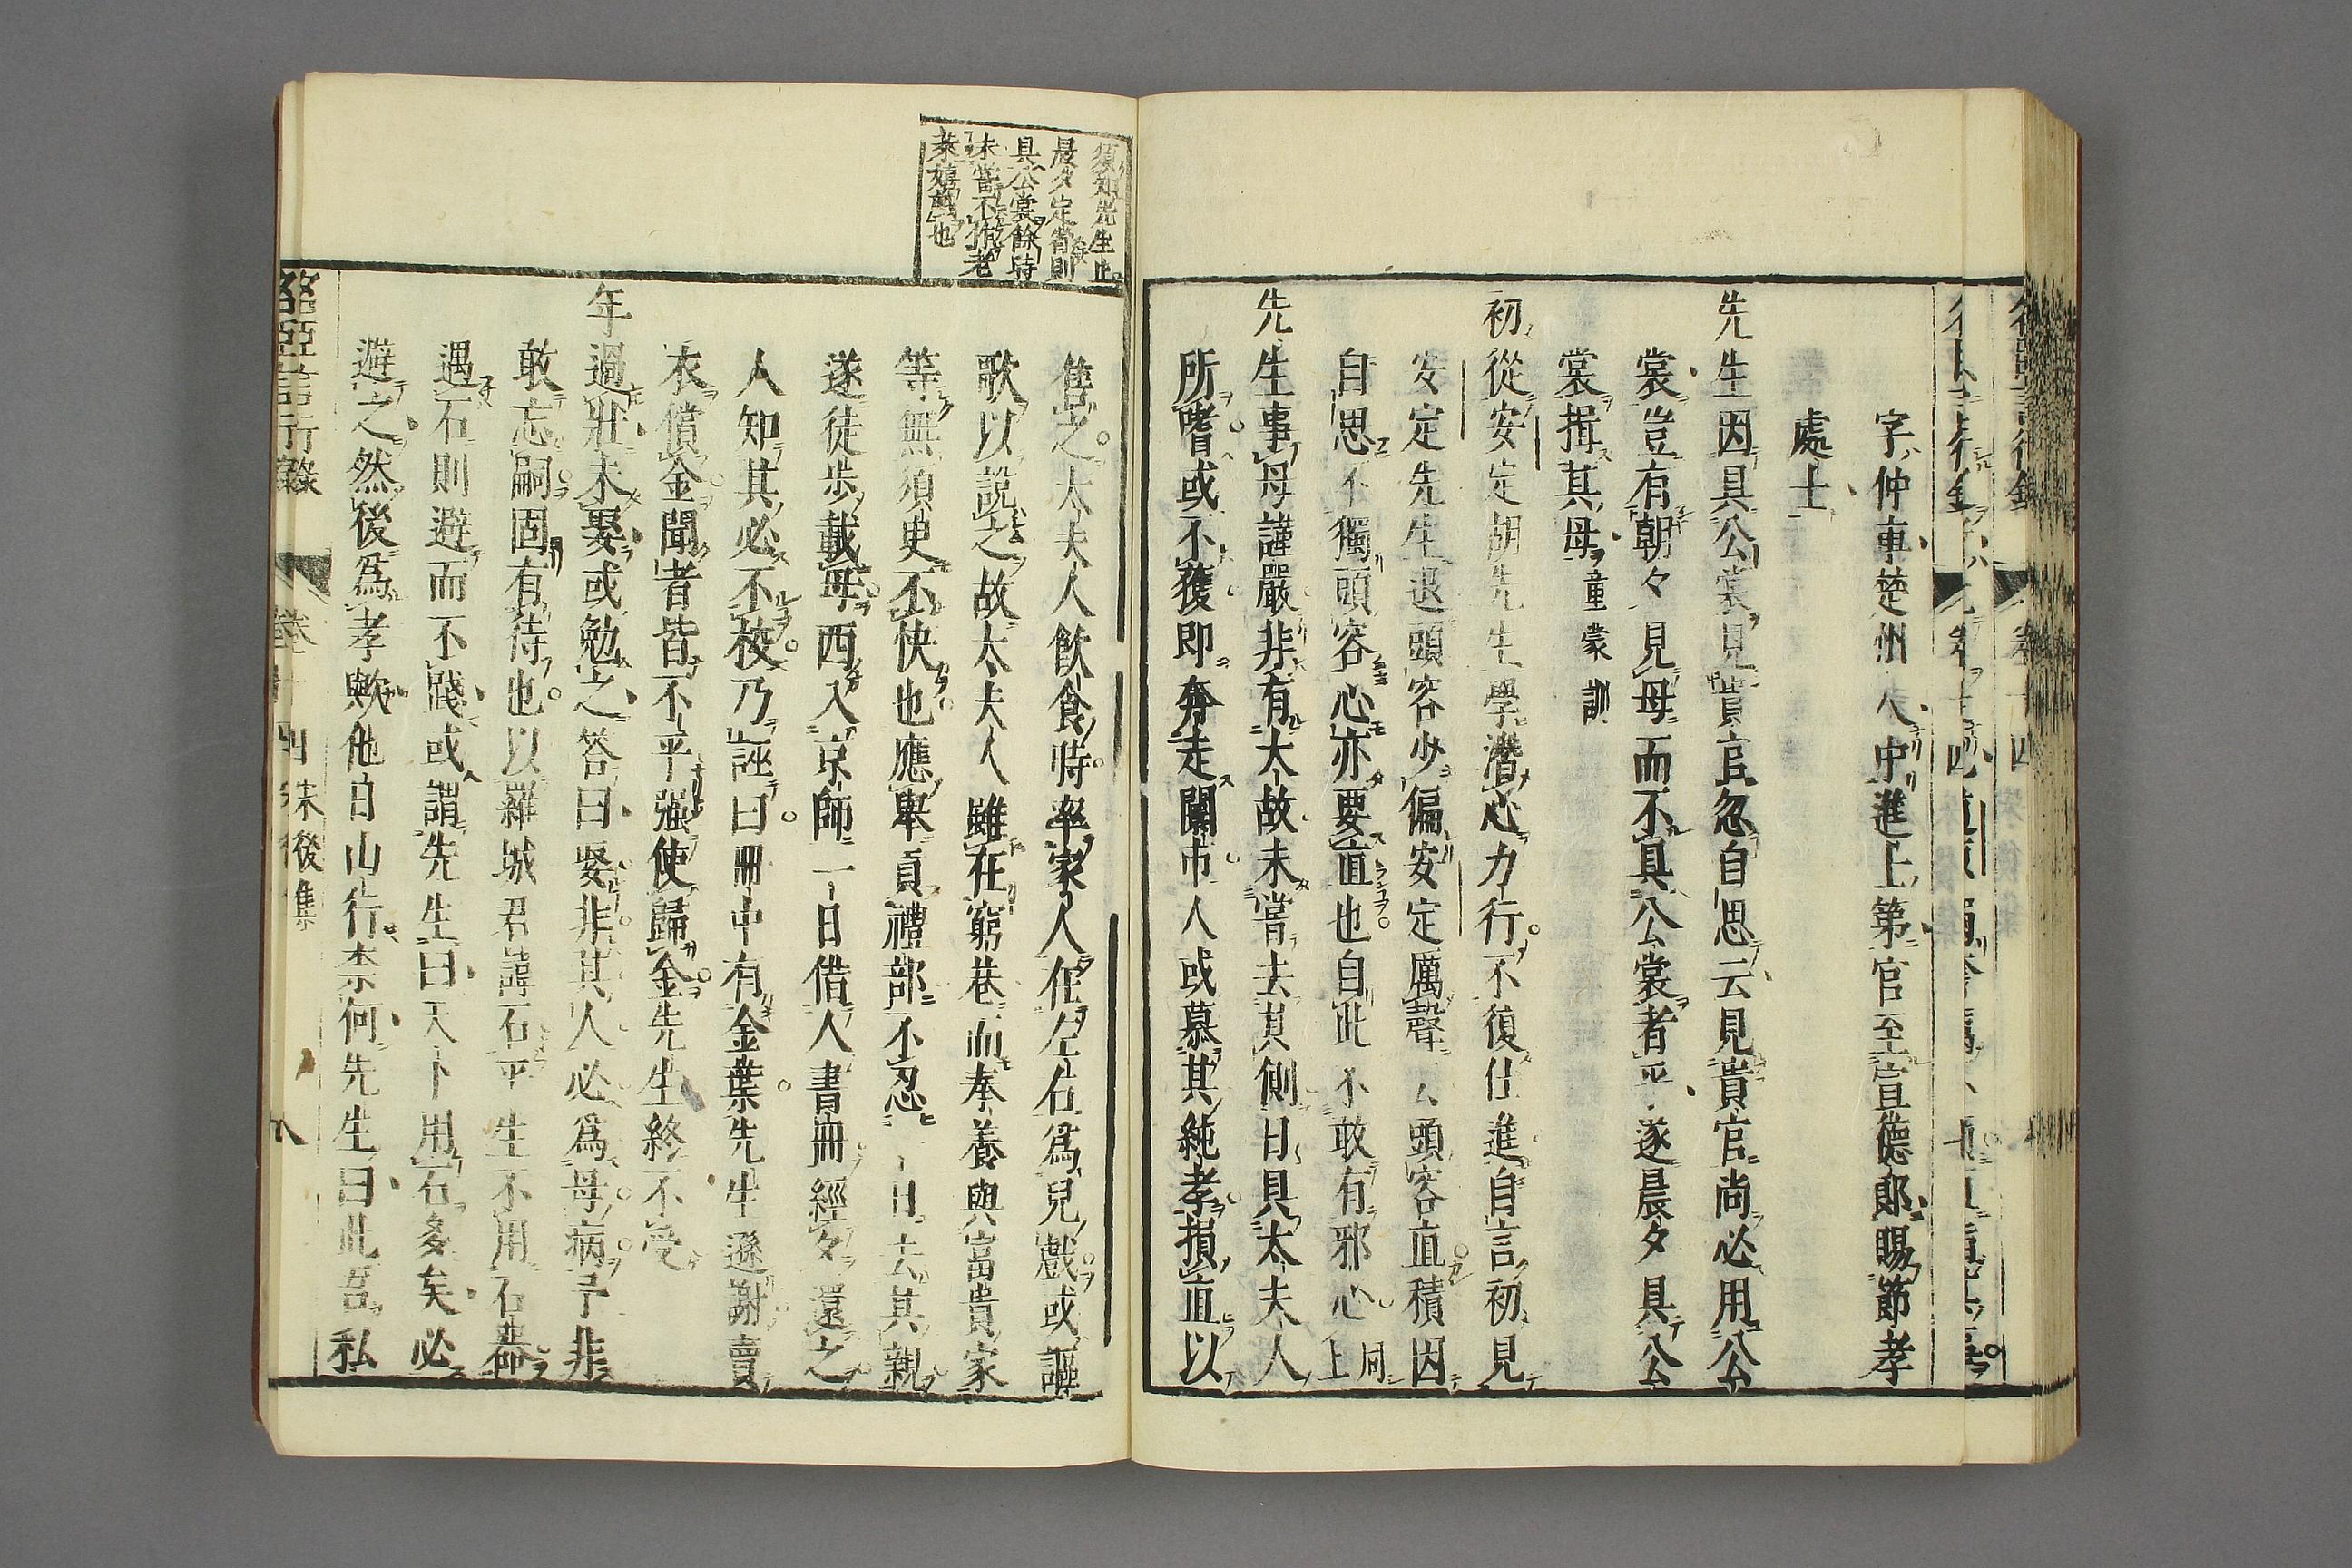 字仲車楚州人中進士第官至宣德郎賜節孝
處士
先生因具公裳見貴官忽自思云見貴官尚必用公
裳豈有朝々見母而不具公裳者乎遂晨夕具公
裳揖其母童蒙訓
初從安定胡先生學潛心力行不復仕進自言初見
安定先生退頭容少偏安定厲聲云頭容直積因
自思不獨頭容心亦要直也自此不敢有邪心同上
先生事母謹嚴非有大故未嘗去其側日具太夫人
所嗜或不獲即奔走闤市人或慕其純孝損直以
須知先生止
晨夕定省則
具公裳餘時
未嘗不作老
萊嬉戲也
售之太夫人飲食時率家人在左右為兒戲或謳
歌以說之故太夫人雖在窮巷而奉養與富貴家
等無須臾不快也應舉貢禮部不忍一日去其親
遂徒步載母西入京師一日借人書冊經夕還之
人知其必不校乃誣曰冊中有金葉先生遜謝賣
衣償金聞者皆不平強使歸金先生終不受
年過壯未娶或勉之答曰娶非其人必為母病予非
敢忘嗣固有待也以羅城君諱石平生不用石器
遇石則避而不踐或謂先生曰天下用石多矣必
避之然後為孝歟他日山行柰何先生曰此吾私
言行錄 卷十四 朱後集 八